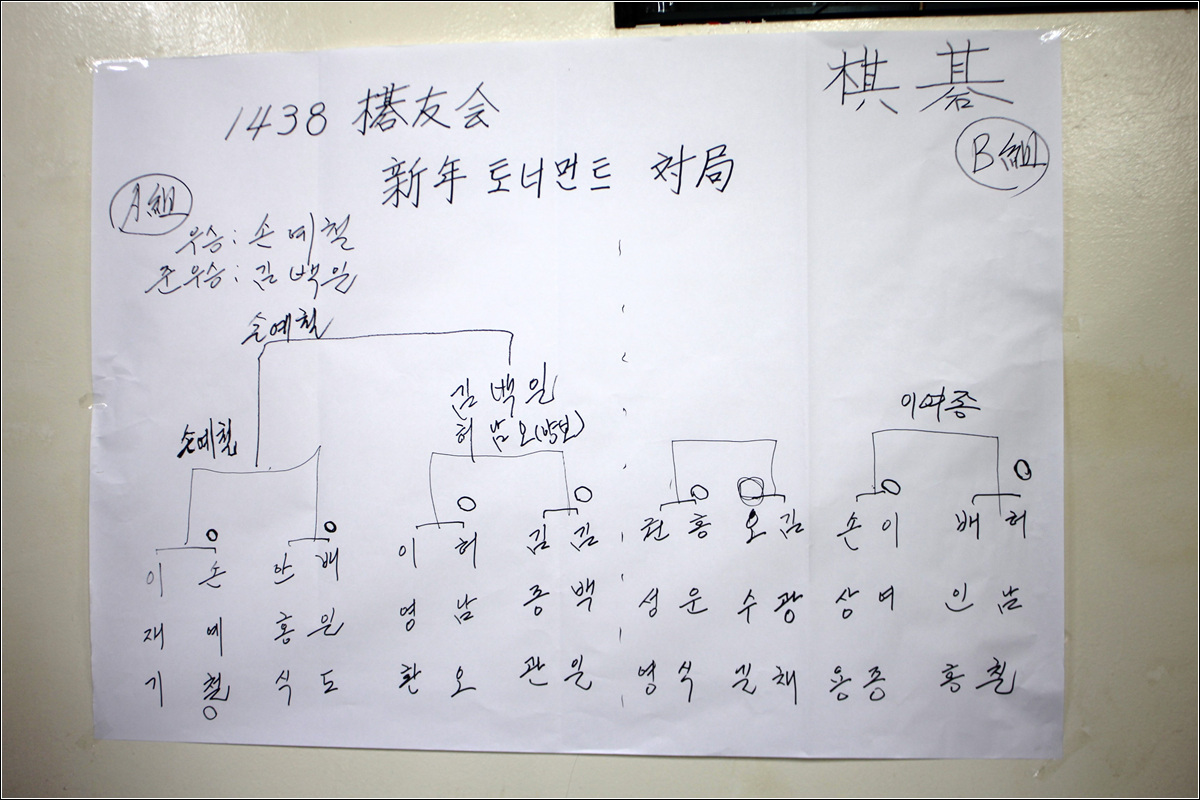 棋 碁
1438 棋友会
新年 토너먼트 対局
A組
B組
우승: 손예철
준우승: 김백일
손예철
김백일
손예철
허남오
이여종
이재기
손예철
안홍식
배일도
이영환
허남오
김종관
김백일
권성영
홍운식
오수길
김광채
손상용
이여종
배인홍
허남철